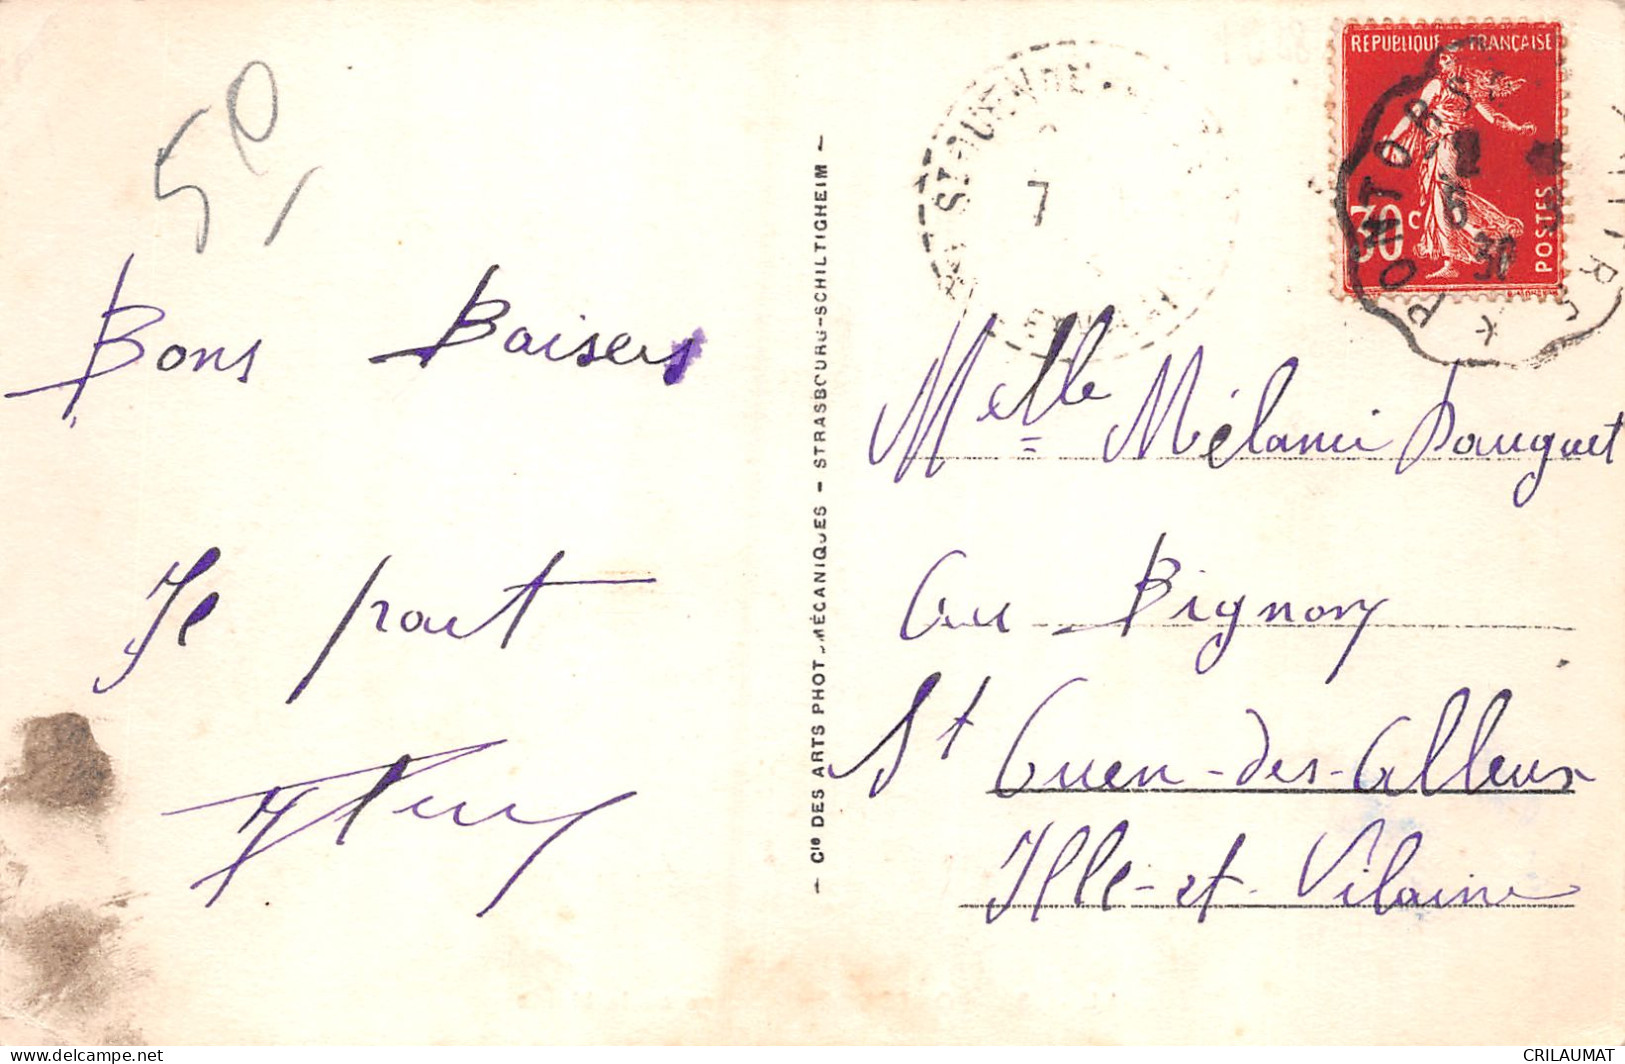 50
Bons Baisers
Je part
- Cie DES ARTS PHOTOMÉCANIQUES - STRASBOURG-SCHILTIGHEIM -
RÉPUBLIQUE FRANÇAISE
30c
POSTES
PONTORSON
6
30
7
Melle Mélanie Douguet
Au Bignon
St Ouen-des-Alleux
Ille-et-Vilaine
delcampe.net
CRILAUMAT